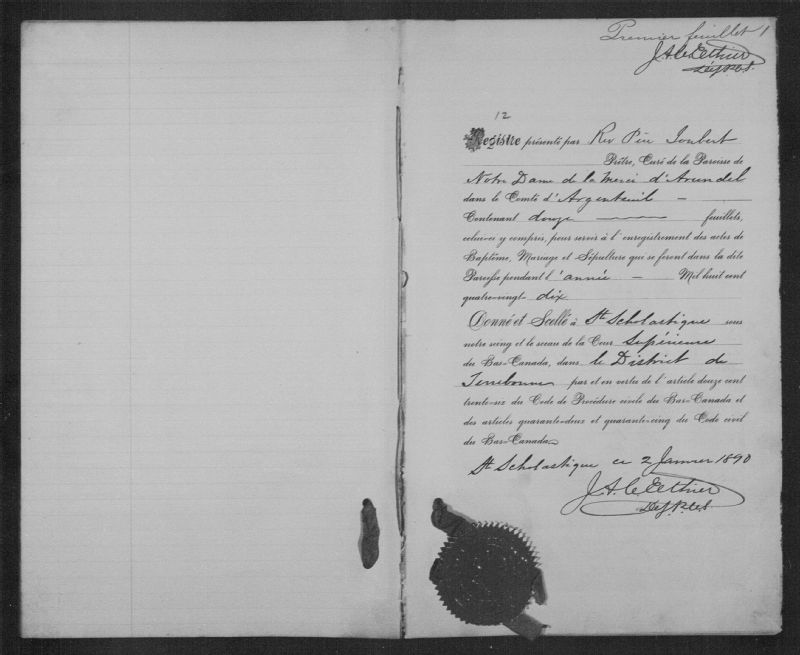 Premier feuillet 1
J.A.C. Ethier
Dep. P.C.S.
12
Registre présenté par Rev Père Joubert
Prêtre, Curé de la Paroisse de
Notre Dame de la Merci d'Arundel
dans le Comté d'Argenteuil —
Contenant douze — feuillets,
celui-ci y compris, pour servir à l'enregistrement des actes de
Baptême, Mariage et Sépulture qui se feront dans la dite
Paroisse pendant l'année — Mil huit cent
quatre-vingt dix
Donné et Scellé à St Scholastique sous
notre seing et le sceau de la Cour Supérieure
du Bas-Canada, dans le District de
Terrebonne par et en vertu de l'article douze cent
trente-six du Code de Procédure civile du Bas-Canada et
des articles quarante-deux et quarante-cinq du Code civil
du Bas-Canada.
St Scholastique ce 2 Janvier 1890
J.A.C. Ethier
Dep. P.C.S.